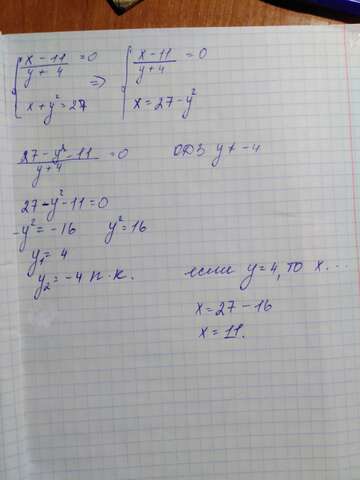 { x - 11 / y + 4 = 0 => { x - 11 / y + 4 = 0
x + y² = 27 x = 27 - y²
27 - y² - 11 / y + 4 = 0 ОДЗ y ≠ -4
27 - y² - 11 = 0
-y² = -16 y² = 16
y₁ = 4
y₂ = -4 п.к.
если y = 4, то x...
x = 27 - 16
x = 11.